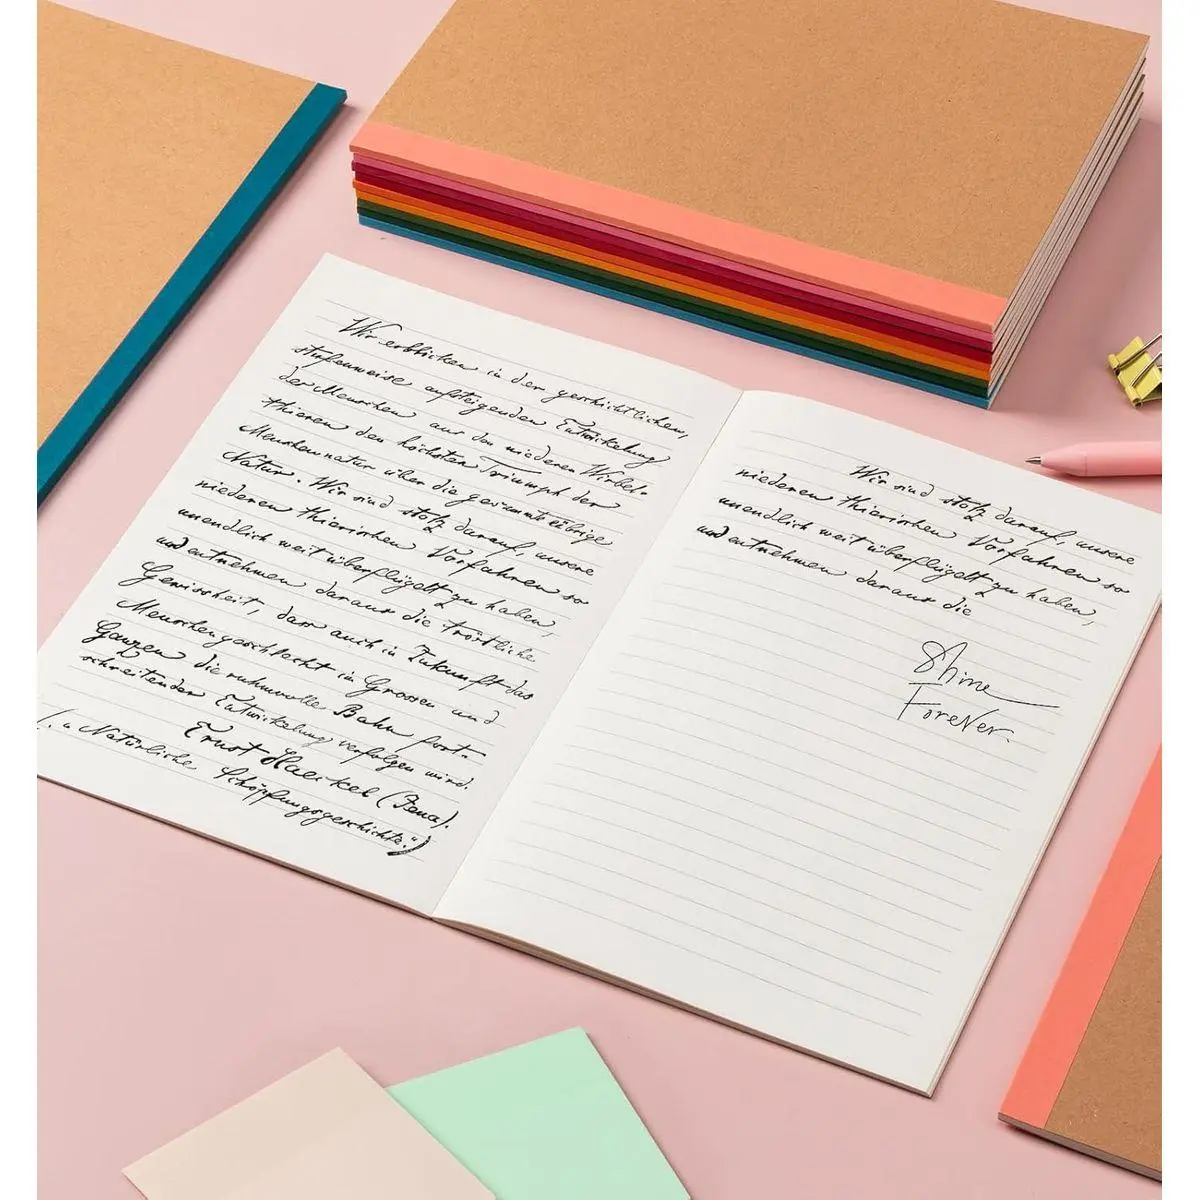 Wir erblicken in der geschichtlichen,
stufenweise aufsteigenden Entwickelung
der Menschen aus den niederen Wirbel-
thieren den höchsten Triumph der
Menschennatur über die gesammte übrige
Natur. Wir sind stolz darauf, unsere
niederen thierischen Vorfahren so
unendlich weit überflügelt zu haben,
und entnehmen daraus die tröstliche
Gewissheit, dass auch in Zukunft das
Menschengeschlecht im Grossen und
Ganzen die ruhmvolle Bahn fort-
schreitender Entwickelung verfolgen wird.
Ernst Haeckel (Jena).
(„Natürliche Schöpfungsgeschichte.")
Wir sind stolz darauf, unsere
niederen thierischen Vorfahren so
unendlich weit überflügelt zu haben,
und entnehmen daraus die
Shine
ForeVer.